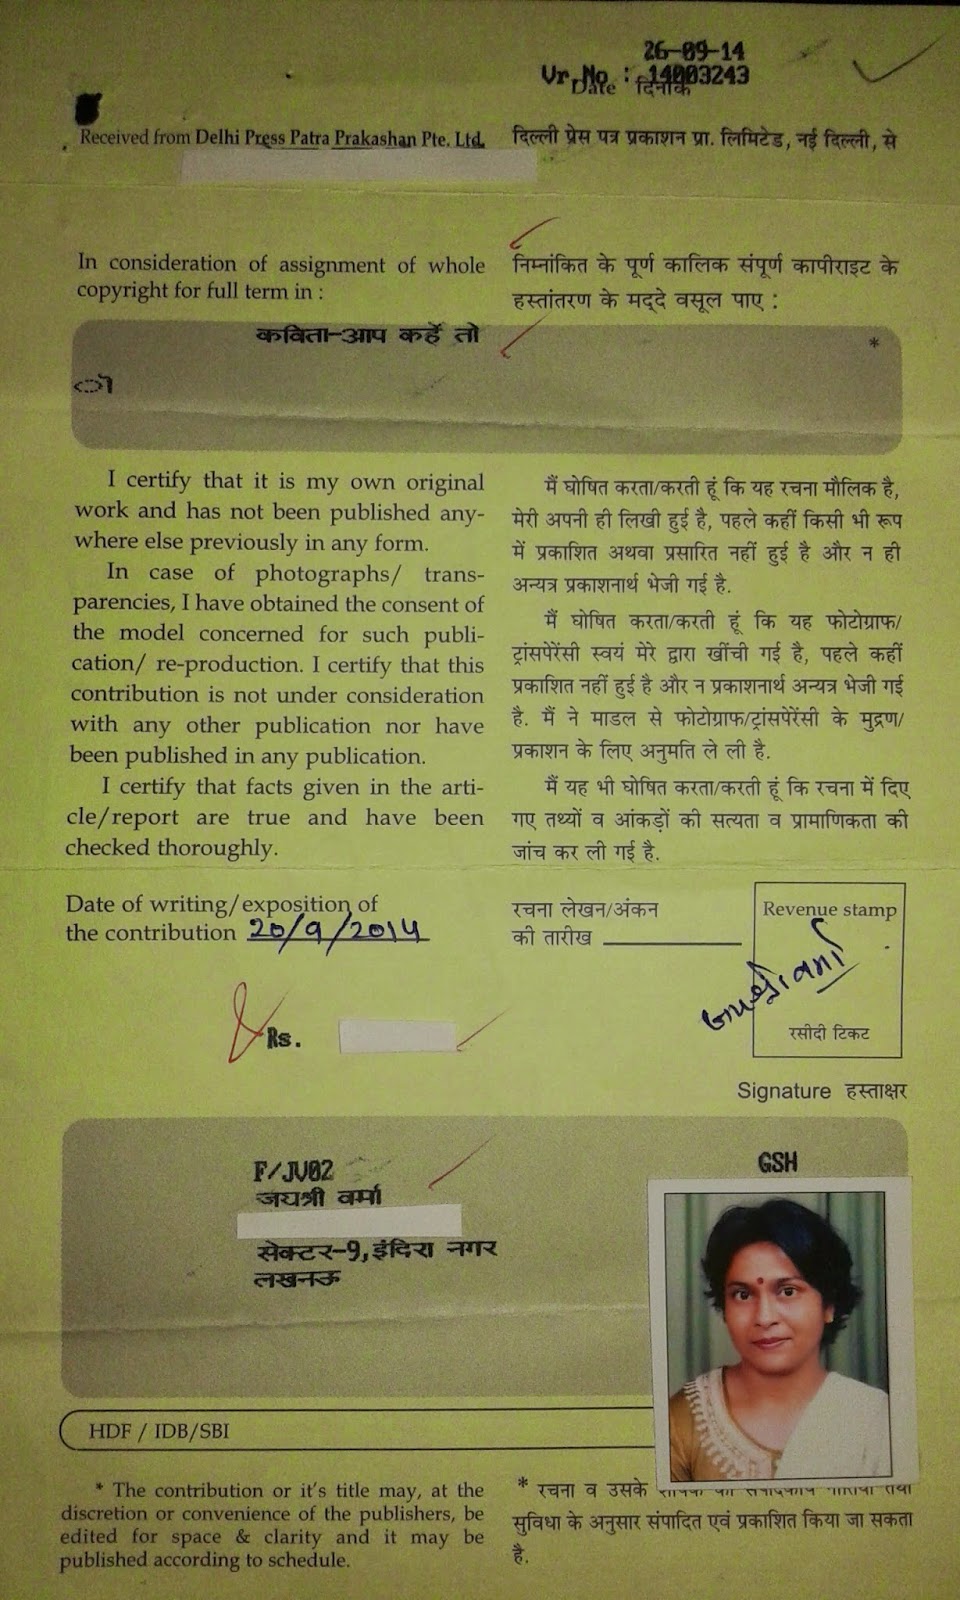 26-09-14
Vr.No : 14003243
Date दिनांक
Received from Delhi Press Patra Prakashan Pte. Ltd.
दिल्ली प्रेस पत्र प्रकाशन प्रा. लिमिटेड, नई दिल्ली, से
In consideration of assignment of whole
copyright for full term in :
निम्नांकित के पूर्ण कालिक संपूर्ण कापीराइट के
हस्तांतरण के मद्दे वसूल पाए :
कविता-आप कहें तो
*
I certify that it is my own original
work and has not been published any-
where else previously in any form.
In case of photographs/ trans-
parencies, I have obtained the consent of
the model concerned for such publi-
cation/ re-production. I certify that this
contribution is not under consideration
with any other publication nor have
been published in any publication.
I certify that facts given in the arti-
cle/report are true and have been
checked thoroughly.
मैं घोषित करता/करती हूं कि यह रचना मौलिक है,
मेरी अपनी ही लिखी हुई है, पहले कहीं किसी भी रूप
में प्रकाशित अथवा प्रसारित नहीं हुई है और न ही
अन्यत्र प्रकाशनार्थ भेजी गई है.
मैं घोषित करता/करती हूं कि यह फोटोग्राफ/
ट्रांसपेरेंसी स्वयं मेरे द्वारा खींची गई है, पहले कहीं
प्रकाशित नहीं हुई है और न प्रकाशनार्थ अन्यत्र भेजी गई
है. मैं ने माडल से फोटोग्राफ/ट्रांसपेरेंसी के मुद्रण/
प्रकाशन के लिए अनुमति ले ली है.
मैं यह भी घोषित करता/करती हूं कि रचना में दिए
गए तथ्यों व आंकड़ों की सत्यता व प्रामाणिकता की
जांच कर ली गई है.
Date of writing/exposition of
the contribution 20/9/2014
रचना लेखन/अंकन
की तारीख
Revenue stamp
जयश्री वर्मा
रसीदी टिकट
Rs.
Signature हस्ताक्षर
F/JV02
GSH
जयश्री वर्मा
सेक्टर-9,इंदिरा नगर
लखनऊ
HDF / IDB/SBI
* The contribution or it's title may, at the
discretion or convenience of the publishers, be
edited for space & clarity and it may be
published according to schedule.
* रचना व उसके
सुविधा के अनुसार संपादित एवं प्रकाशित किया जा सकता
है.